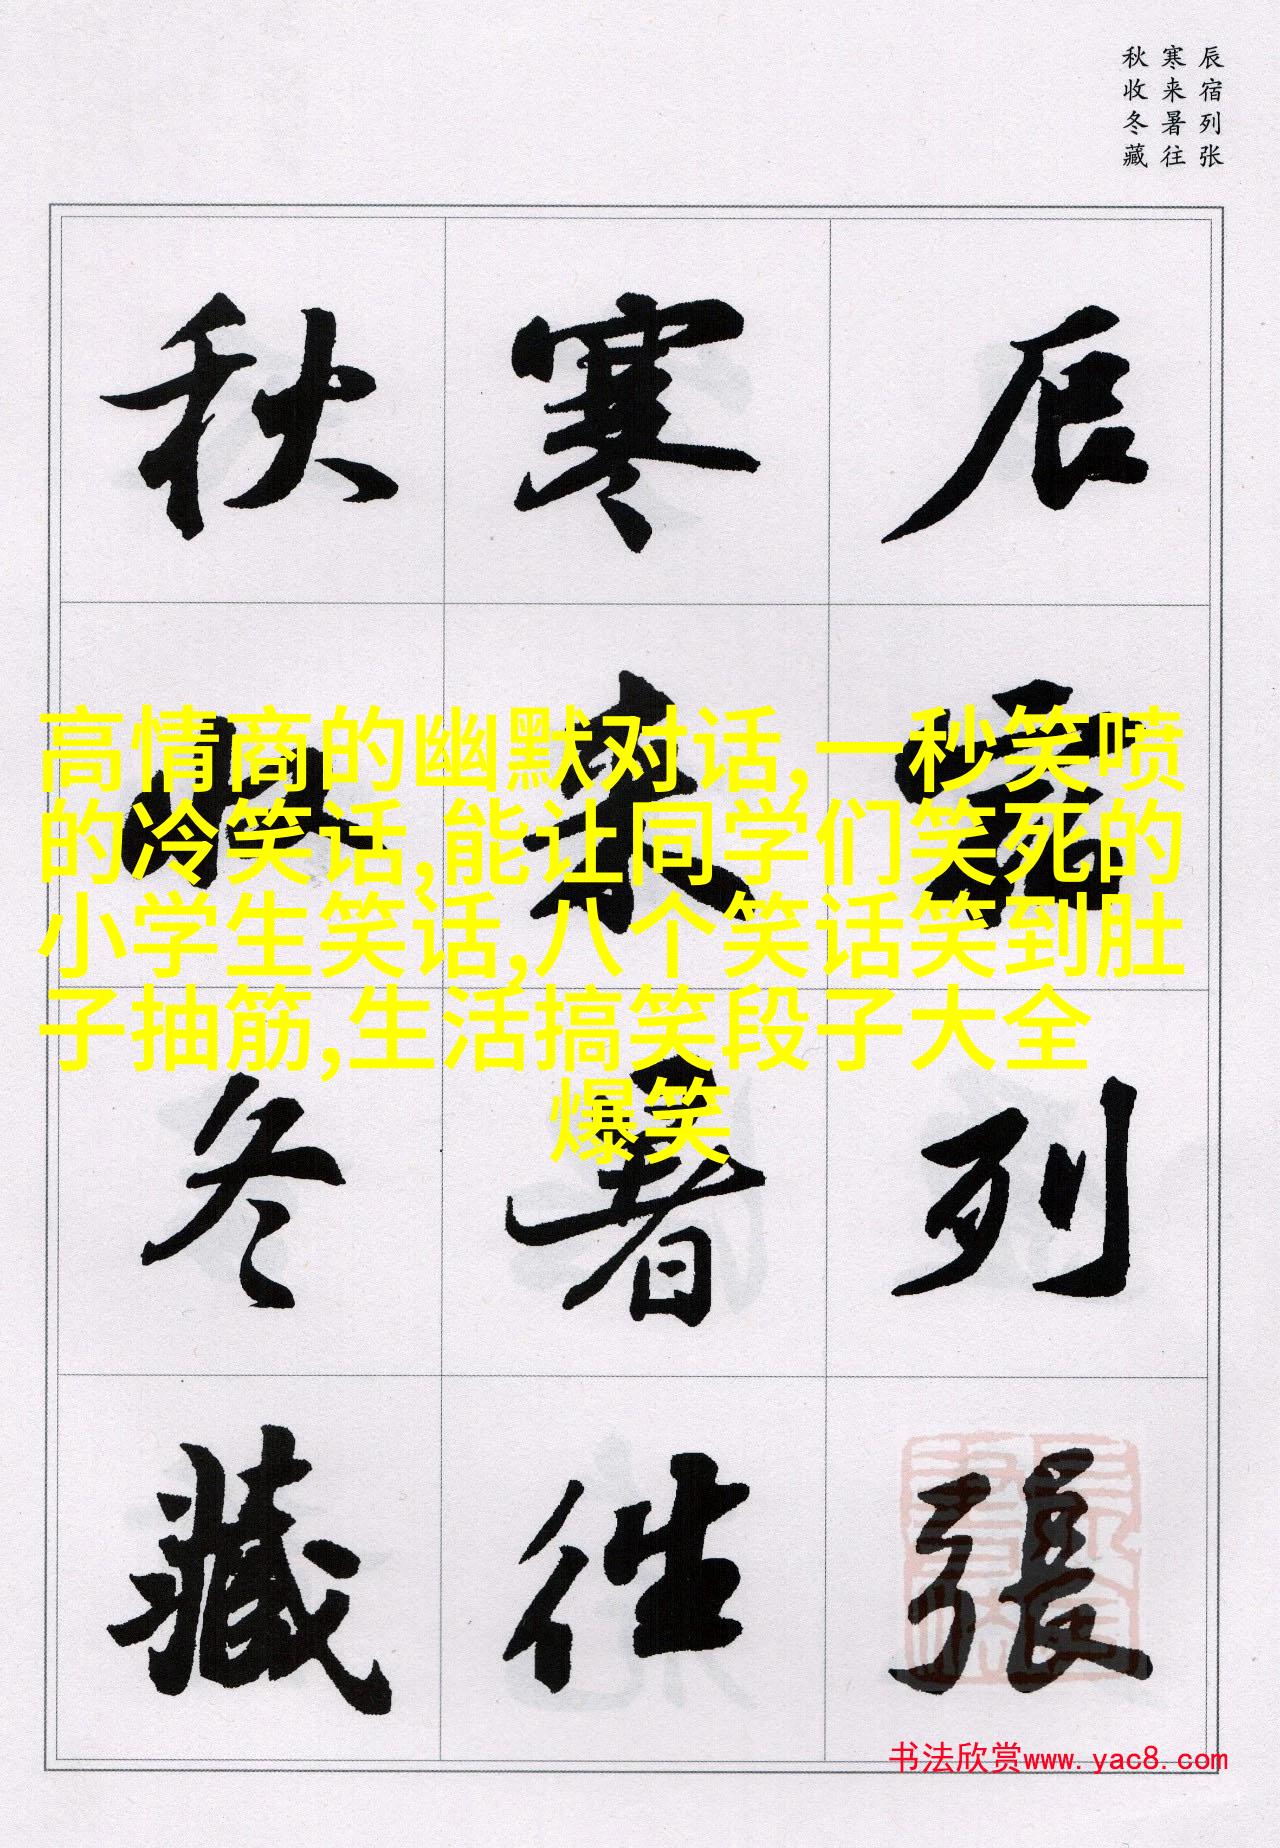 辰宿列张
寒来暑往
秋收冬藏
辰宿列張
寒来暑往
秋收冬藏
高情商的幽默对话,一秒笑喷
的冷笑话,能让同学们笑死的
小学生笑话,八个笑话笑到肚
子抽筋,生活搞笑段子大全
爆笑
书法欣赏www.yac8.com